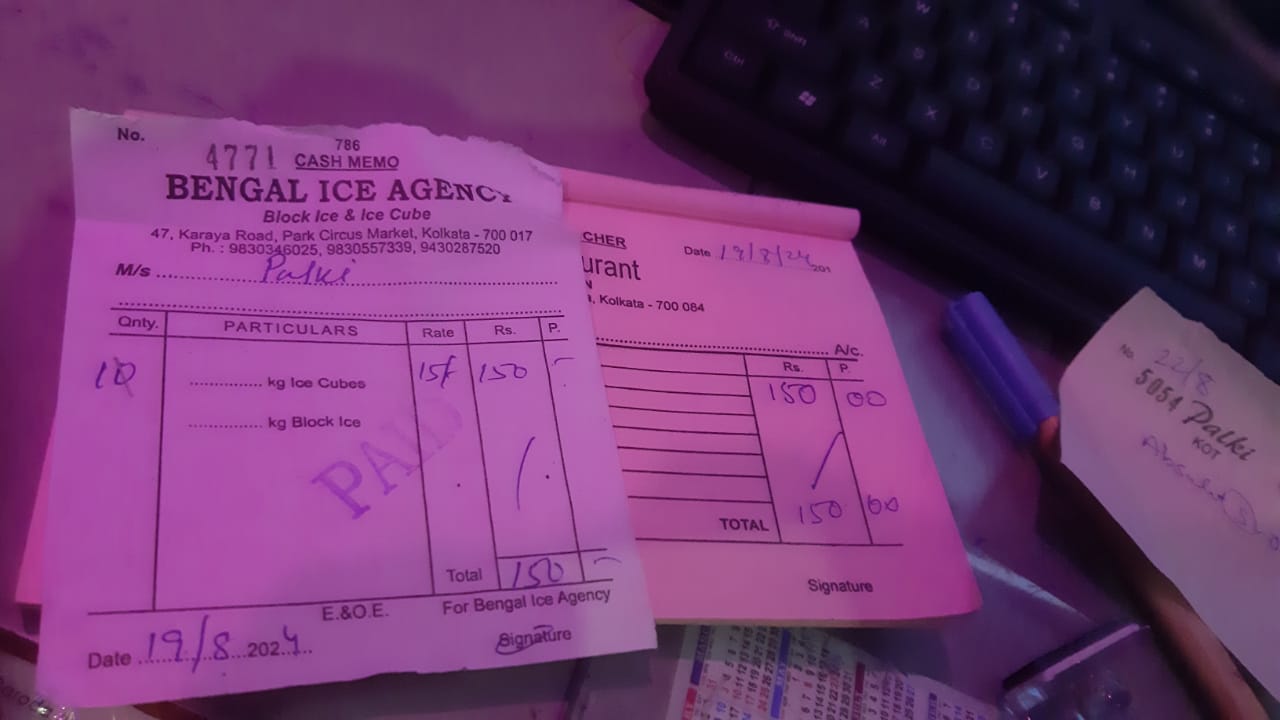 No.
4771
786
CASH MEMO
BENGAL ICE AGENCY
Block Ice & Ice Cube
47, Karaya Road, Park Circus Market, Kolkata - 700 017
Ph. : 9830346025, 9830557339, 9430287520
M/s Palki
Qnty. PARTICULARS Rate Rs. P.
10 kg Ice Cubes 15/ 150 -
kg Block Ice
PAID
Total 150 -
E.&O.E. For Bengal Ice Agency
Date 19/8 2024
Signature
CHER
Date 19/8/24 201
urant
N
, Kolkata - 700 084
A/c.
Rs. P.
150 00
TOTAL 150 00
Signature
22/8
No 5054 Palki
KOT
Shift
Ctrl
Alt
A
W
S
Z
X
C
V
B
N
M